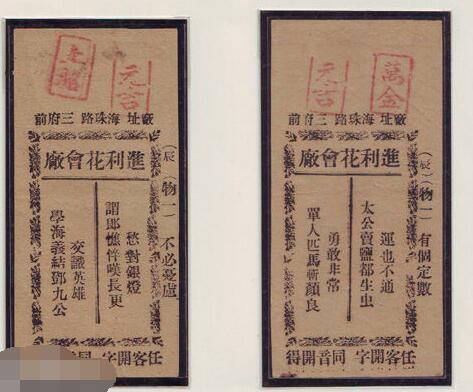 元吉
廠址 海珠路 三府前
進利花會廠
(辰)物一 不必憂慮
愁對銀燈
謂郎憔悴嘆長更
交識英雄
學海義結鄧九公
任客開字 同音開
萬金
元吉
廠址 海珠路 三府前
進利花會廠
(辰)物一 有個定數
運也不通
太公賣鹽都生虫
勇敢非常
單人匹馬斬顏良
任客開字 同音開得